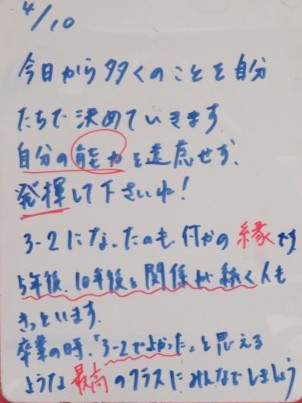 4/10
今日から多くのことを自分
たちで決めていきます
自分の能力を遠慮せず、
発揮して下さいね!
3-2になったのも、何かの縁です
5年後、10年後と関係が続く人も
きっといます。
卒業の時、「3-2でよかった」と思える
ような最高のクラスにみんなでしましょう